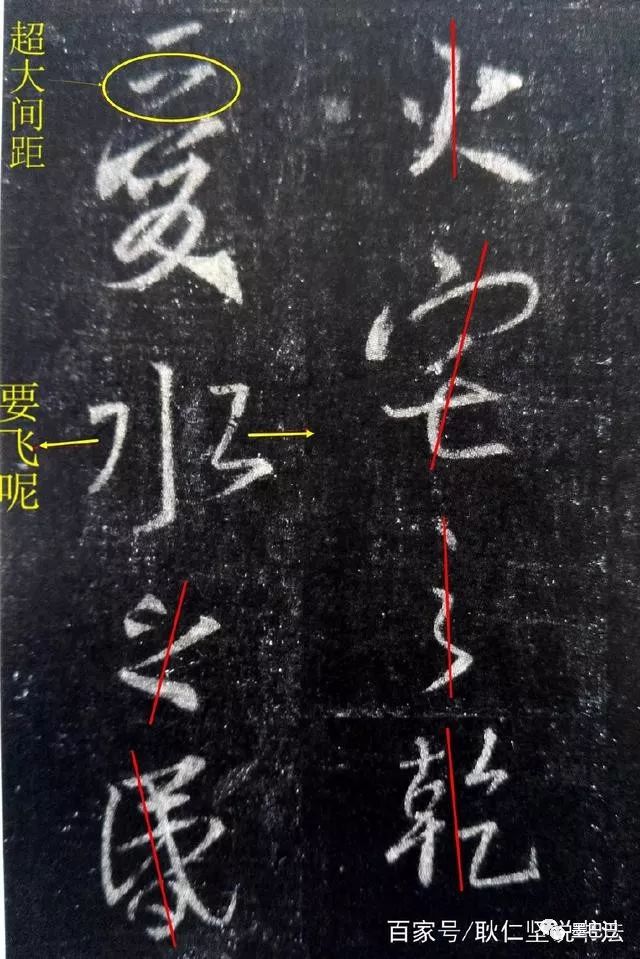 超大间距
要飞呢
火宅之乾
愛水之
百家号/耿仁坚说书法